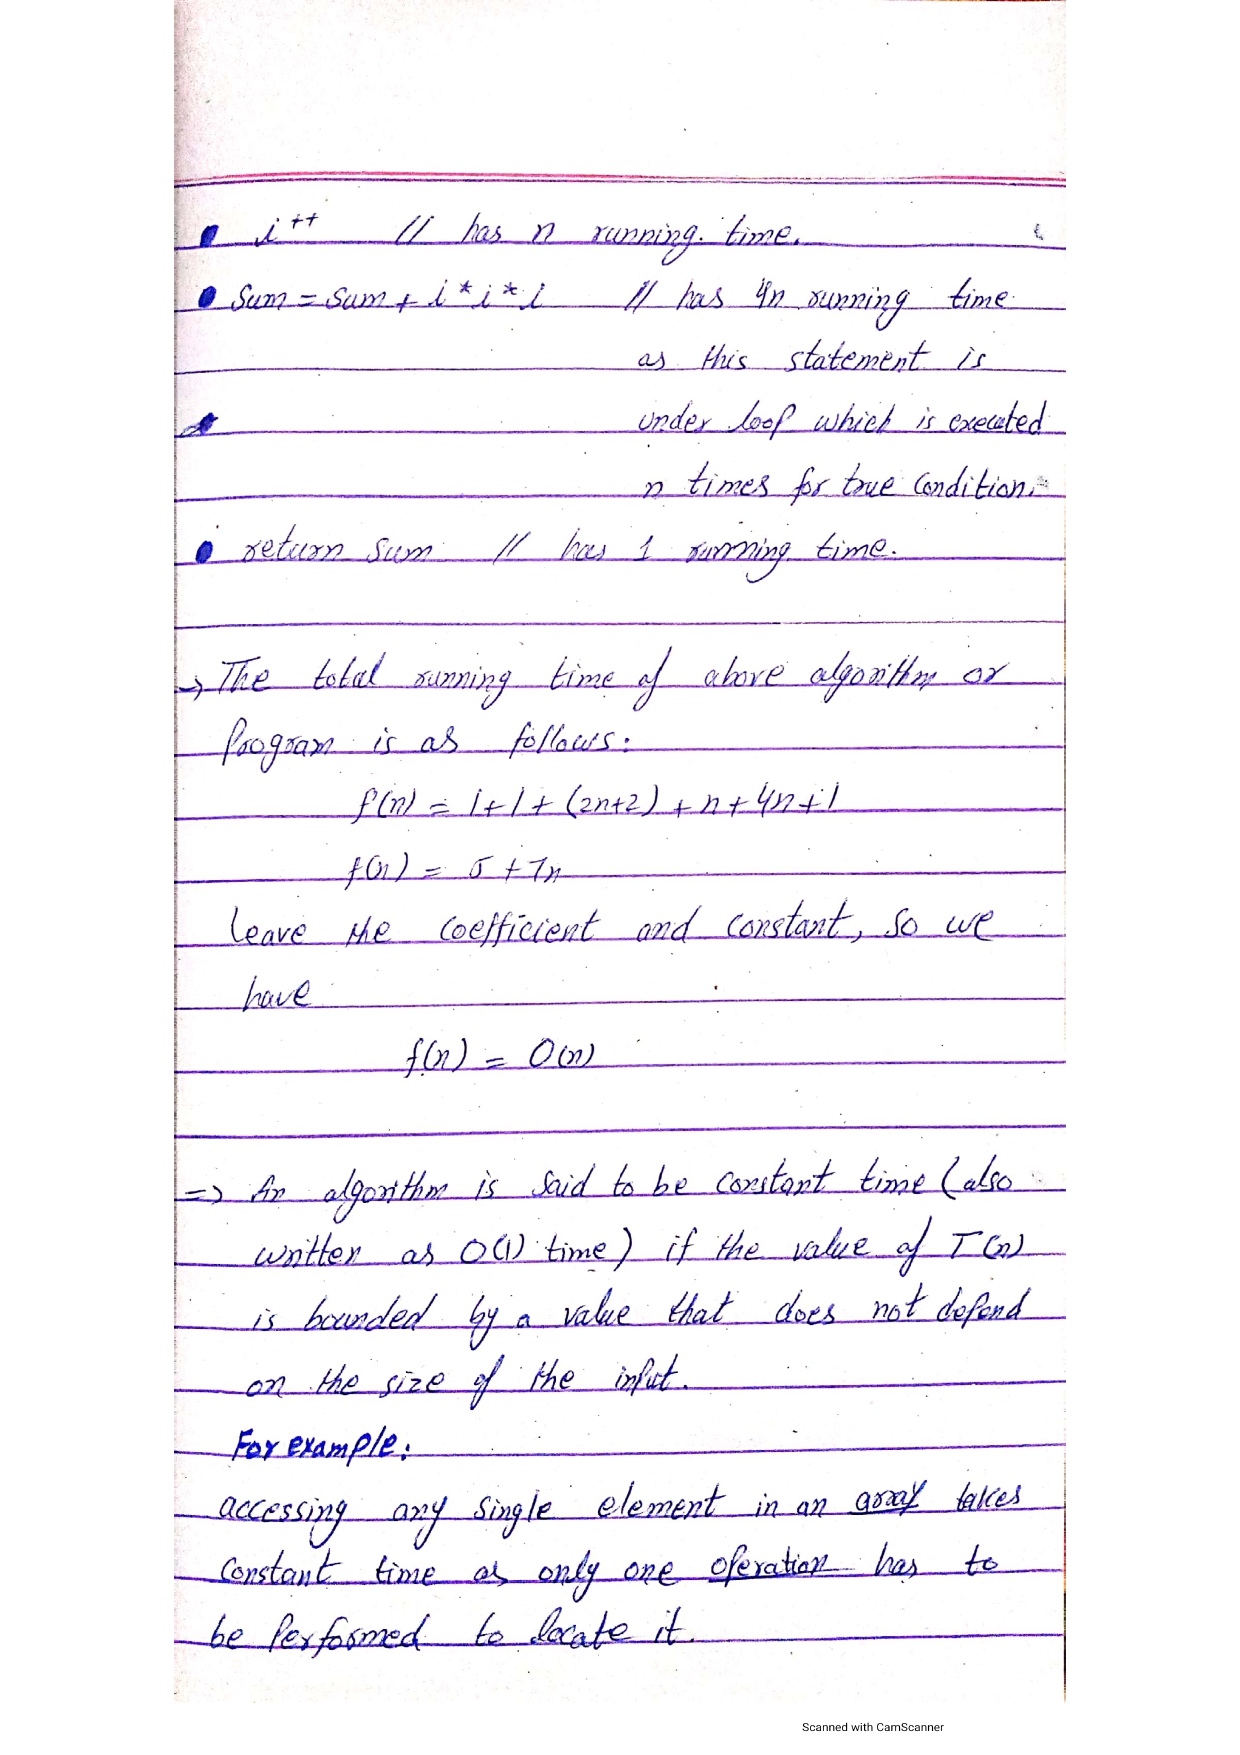 • i++ // has n running time.
• Sum = Sum + i * i * i // has 4n running time
as this statement is
under loop which is executed
n times for true Condition.
• return Sum // has 1 running time.
→ The total running time of above algorithm or
Program is as follows:
f(n) = 1+1+(2n+2)+n+4n+1
f(n) = 5+7n
Leave the Coefficient and Constant, So we
have
f(n) = O(n)
=> An algorithm is Said to be Constant time (also
written as O(1) time) if the value of T(n)
is bounded by a value that does not depend
on the size of the input.
For example:
accessing any Single element in an array takes
Constant time as only one operation has to
be Performed to locate it.
Scanned with CamScanner